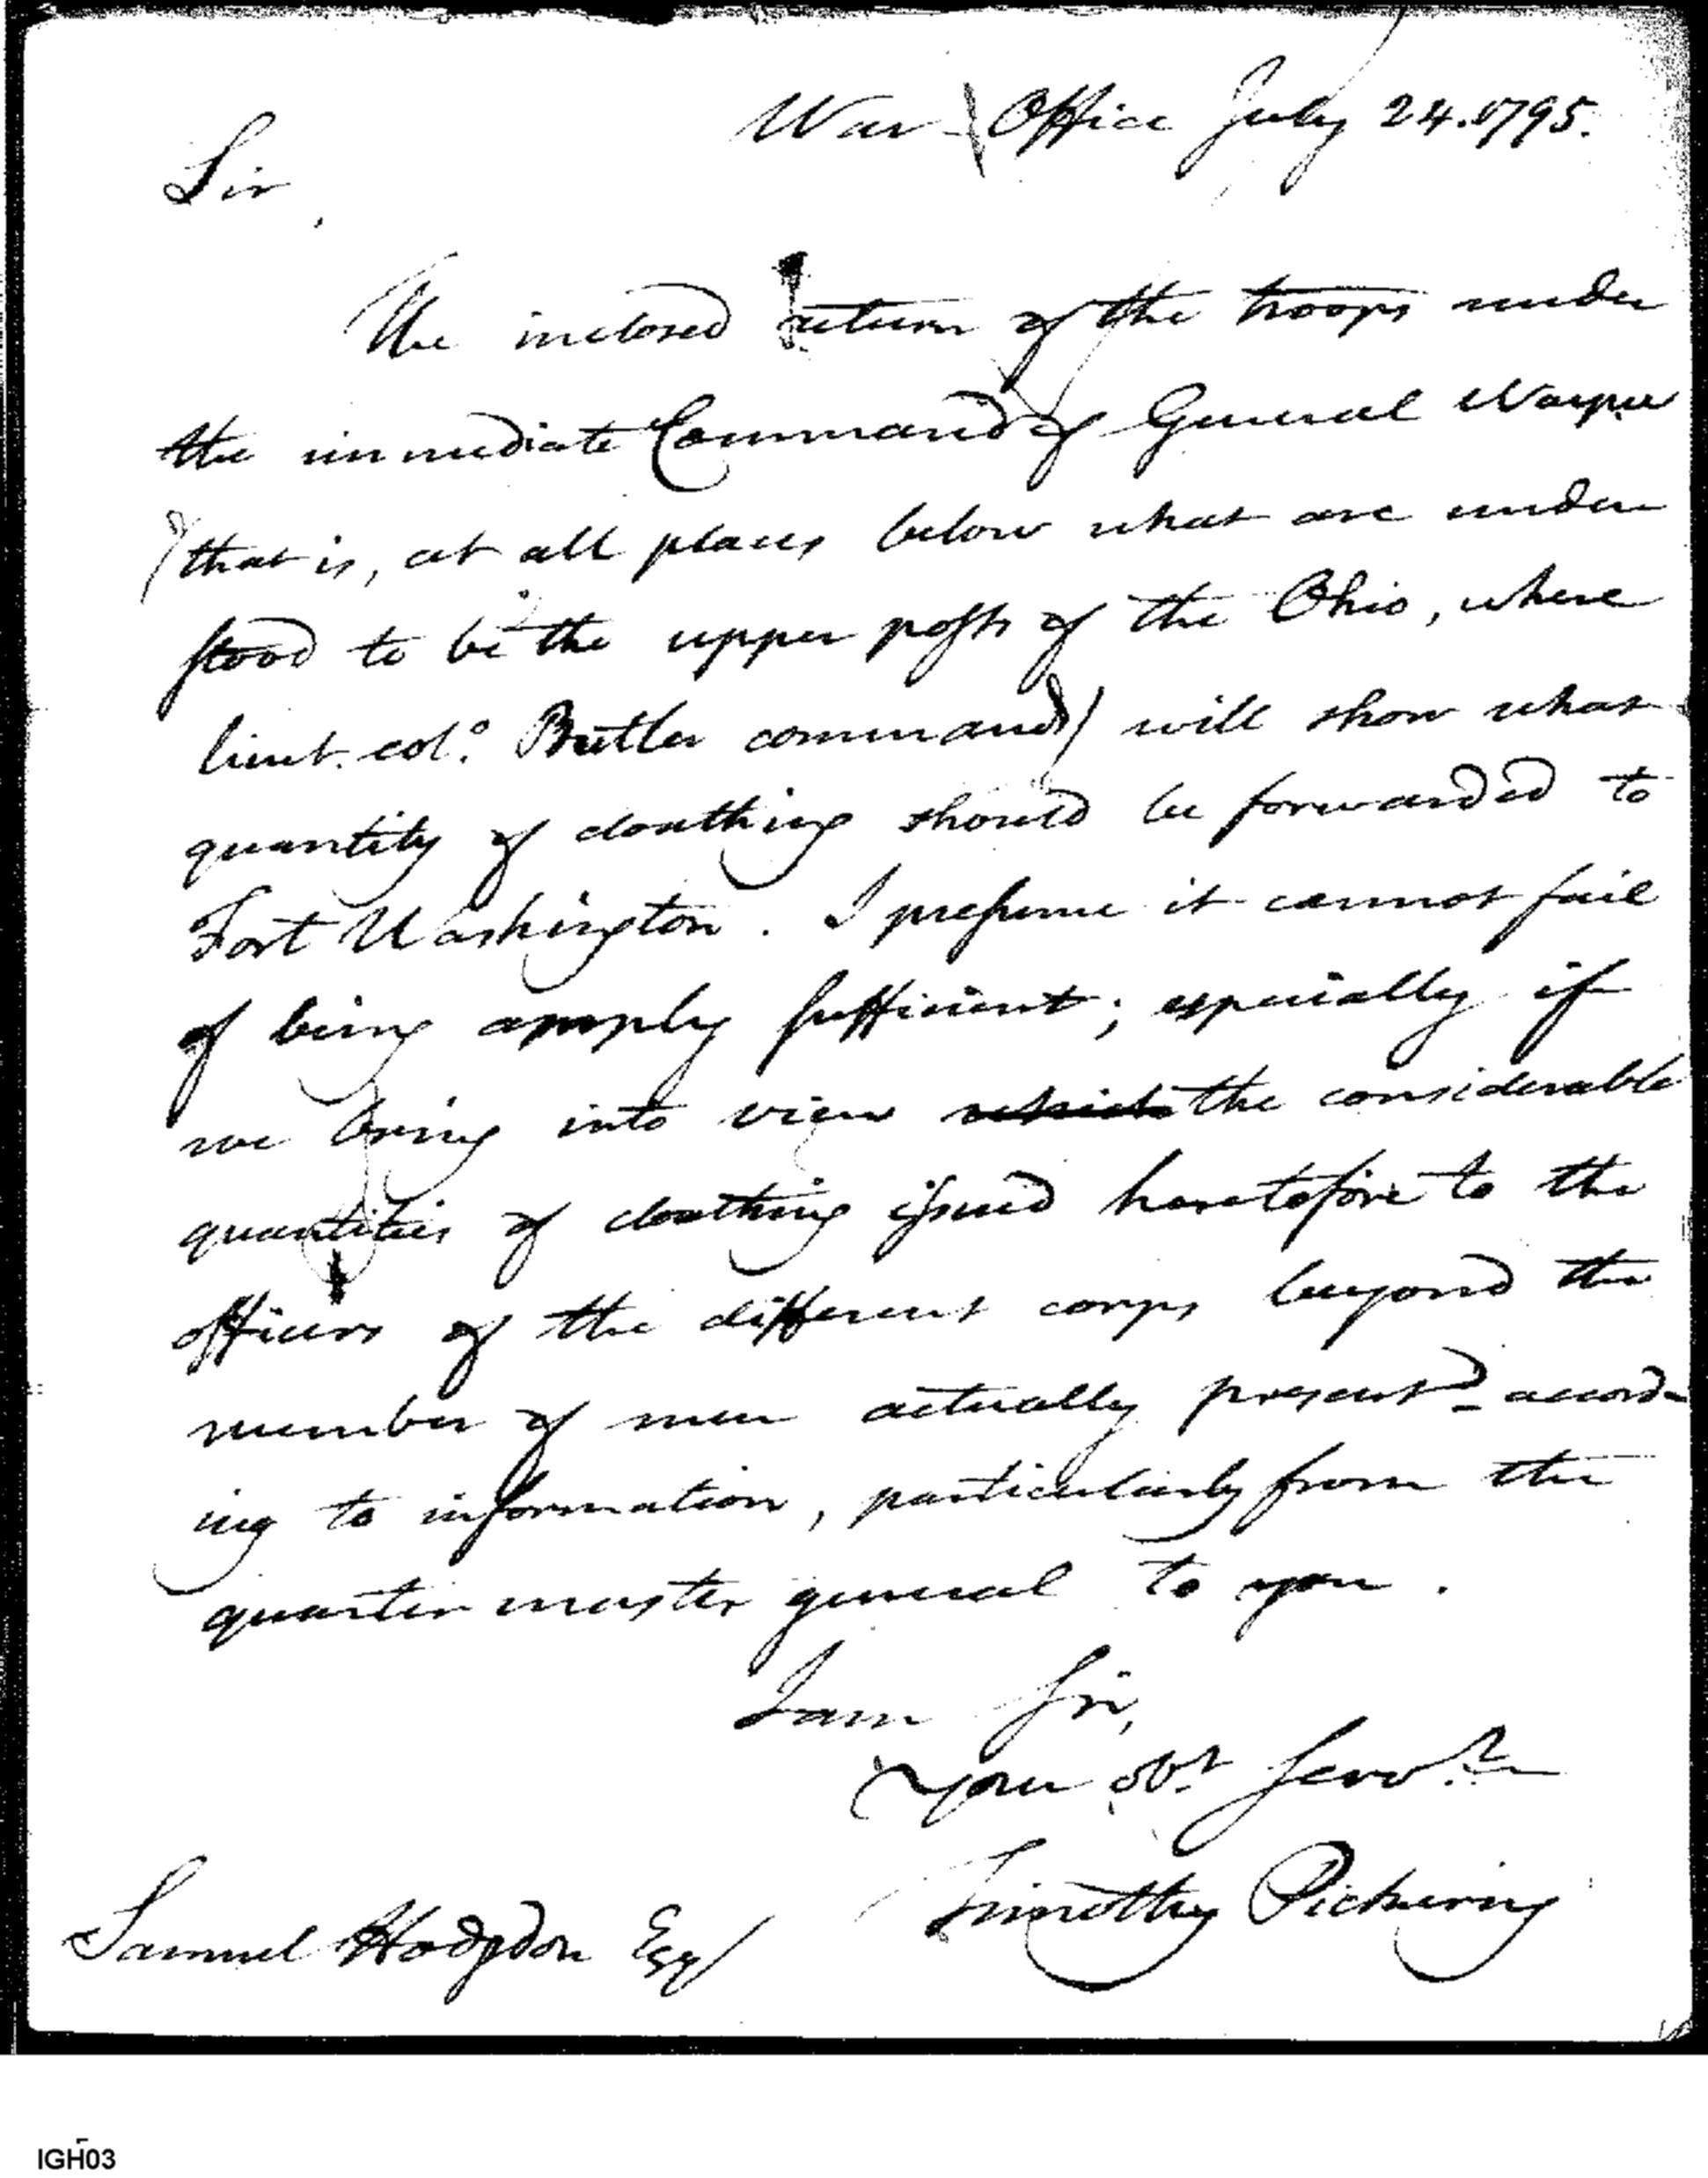 War Office July 24. 1795.
Sir,
The inclosed return of the troops under
the immediate Command of General Wayne
(that is, at all places below what are under
stood to be the upper posts of the Ohio, where
lieut. colo. Butler commands) will show what
quantity of cloathing should be forwarded to
Fort Washington. I presume it cannot fail
of being amply sufficient; especially if
we bring into view the considerable
quantities of cloathing issued heretofore to the
officers of the different corps beyond the
number of men actually present accord-
ing to information, particularly from the
quarter master general to you.
I am Sir,
Your obt. Servt.
Timothy Pickering
Samuel Hodgdon Esq
IGH03